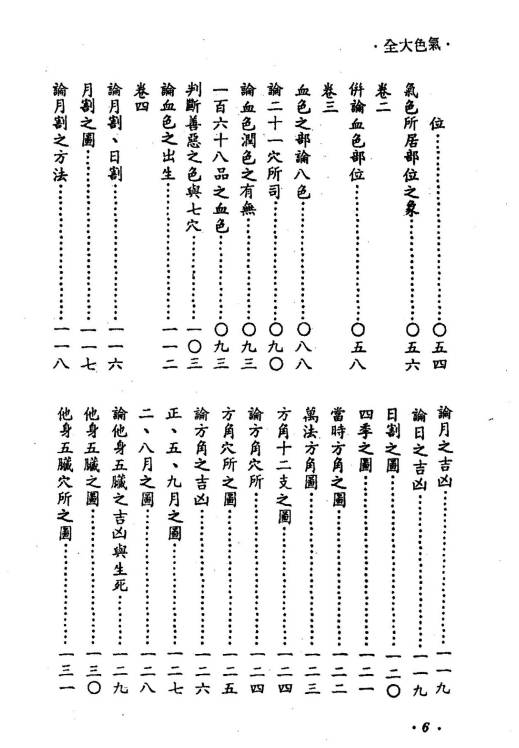 ·氣色大全·
位……………………〇五四
氣色所居部位之象……………〇五六
卷二
併論血色部位……………〇五八
卷三
血色之部論八色……………〇八八
論二十一穴所司……………〇九〇
論血色潤色之有無……………〇九三
一百六十八品之血色……………〇九三
判斷善惡之色與七穴……………一〇三
論血色之出生……………一一二
卷四
論月割、日割……………一一六
月割之圖……………一一七
論月割之方法……………一一八
論月之吉凶……………一一九
論日之吉凶……………一一九
日割之圖……………一二〇
四季之圖……………一二一
當時方角之圖……………一二二
萬法方角圖……………一二三
方角十二支之圖……………一二四
論方角穴所……………一二四
方角穴所之圖……………一二五
論方角之吉凶……………一二六
正、五、九月之圖……………一二七
二、八月之圖……………一二八
論他身五臟之吉凶與生死……………一二九
他身五臟之圖……………一三〇
他身五臟穴所之圖……………一三一
·6·